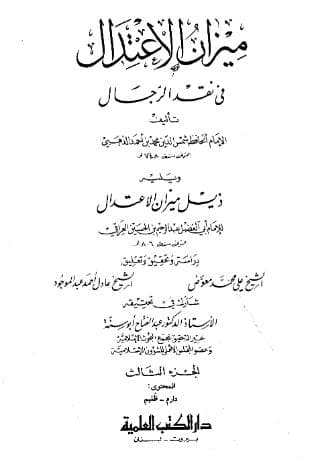 ميزان الاعتدال
في نقد الرجال
تأليف
الإمام الحافظ شمس الدين محمد بن أحمد الذهبي
المتوفى سنة ٧٤٨ هـ
ويليه
ذيل ميزان الاعتدال
للإمام أبي الفضل عبد الرحيم بن الحسين العراقي
المتوفى سنة ٨٠٦ هـ
دراسة وتحقيق وتعليق
الشيخ علي محمد معوض الشيخ عادل أحمد عبد الموجود
شارك في تحقيقه
الأستاذ الدكتور عبد الفتاح أبو سنة
خبير التحقيق بمجمع البحوث الإسلامية
وعضو المجلس الأعلى للشؤون الإسلامية
الجزء الثالث
المحتوى:
دارم - ظليم
دار الكتب العلمية
بيروت - لبنان